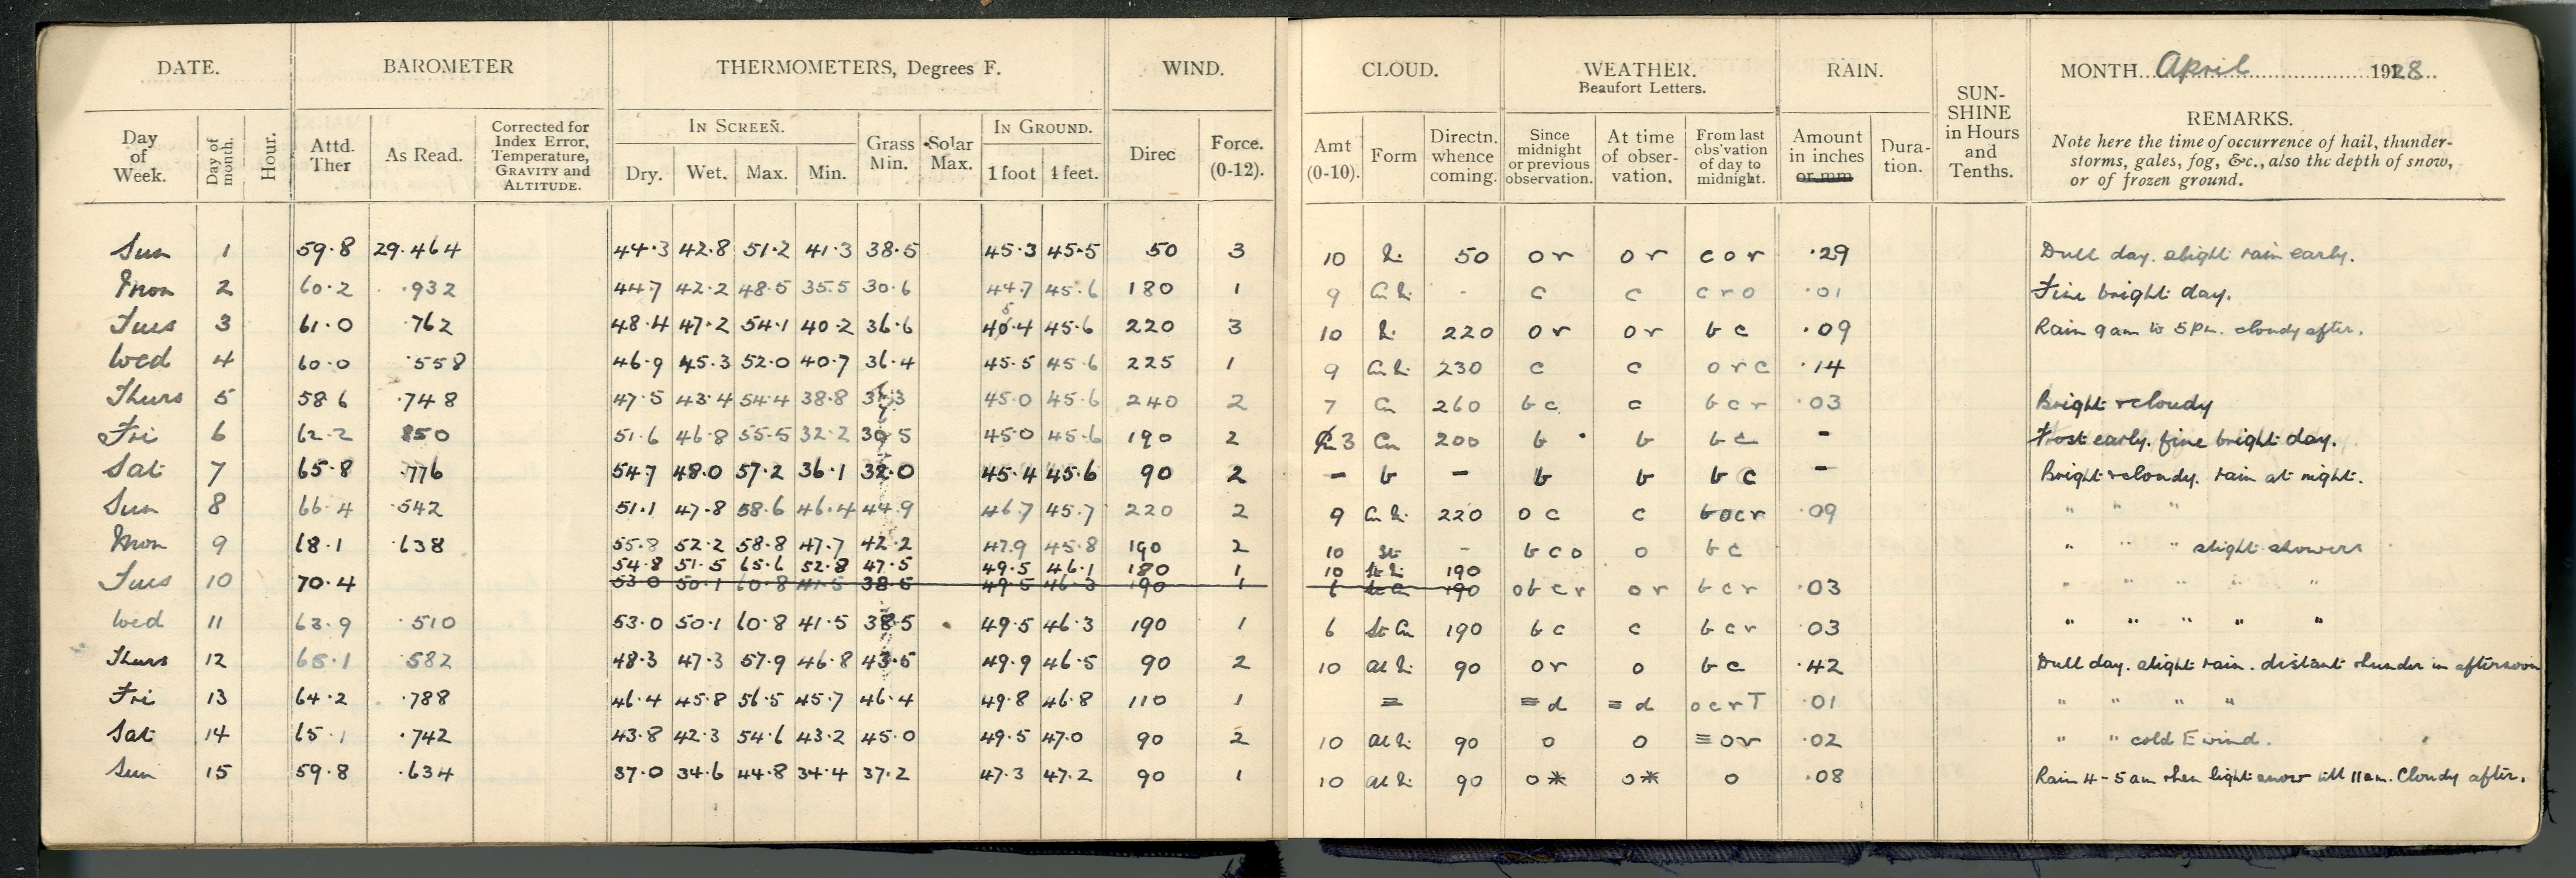 DATE. BAROMETER THERMOMETERS, Degrees F. WIND. CLOUD. WEATHER. Beaufort Letters. RAIN. SUN-SHINE in Hours and Tenths. MONTH April 1928
REMARKS.
Note here the time of occurrence of hail, thunder-
storms, gales, fog, &c., also the depth of snow,
or of frozen ground.
IN SCREEN. IN GROUND.
Day of Week. Day of month. Hour. Attd. Ther As Read. Corrected for Index Error, Temperature, GRAVITY and ALTITUDE. Dry. Wet. Max. Min. Grass Min. Solar Max. 1 foot 4 feet. Direc Force. (0-12). Amt (0-10). Form Directn. whence coming. Since midnight or previous observation. At time of obser-vation. From last obs'vation of day to midnight. Amount in inches or mm Dura-tion.
Sun 1 59.8 29.464 44.3 42.8 51.2 41.3 38.5 45.3 45.5 50 3 10 50 or or cor .29 Dull day. slight rain early.
Mon 2 60.2 .932 44.7 42.2 48.5 35.5 30.6 44.7 45.6 180 1 9 - c c cro .01 Fine bright day.
Tues 3 61.0 .762 48.4 47.2 54.1 40.2 36.6 45.6 220 3 10 220 or or bc .09 Rain 9am to 5pm. cloudy after.
Wed 4 60.0 .558 46.9 45.3 52.0 40.7 36.4 45.5 45.6 225 1 9 230 c c orc .14
Thurs 5 58.6 .748 47.5 43.4 54.4 38.8 45.0 45.6 240 2 7 Cu 260 bc c bcr .03 Bright & cloudy
Fri 6 62.2 850 51.6 46.8 55.5 32.2 30.5 45.0 45.6 190 2 3 Cu 200 b b bc - Frost early. fine bright day.
Sat 7 65.8 .776 54.7 48.0 57.2 36.1 32.0 45.4 45.6 90 2 - b - b b bc - Bright & cloudy. rain at night.
Sun 8 66.4 .542 51.1 47.8 58.6 46.4 44.9 46.7 45.7 220 2 9 220 oc c bocr .09 " " "
Mon 9 68.1 .638 55.8 52.2 58.8 47.7 42.2 47.9 45.8 190 2 10 St - bco o bc " " " slight showers
54.8 51.5 65.6 52.8 47.5 49.5 46.1 180 1 10 190
Tues 10 70.4 53.0 50.1 60.8 41.5 38.5 49.5 46.3 190 1 6 St Cu 190 obcr or bcr .03 " " " " "
Wed 11 63.9 .510 53.0 50.1 60.8 41.5 38.5 49.5 46.3 190 1 6 St Cu 190 bc c bcr .03 " " " " "
Thurs 12 65.1 .582 48.3 47.3 57.9 46.8 43.5 49.9 46.5 90 2 10 90 or o bc .42 Dull day. slight rain. distant thunder in afternoon
Fri 13 64.2 .788 46.4 45.8 56.5 45.7 46.4 49.8 46.8 110 1 ≡ ≡d ≡d ocrT .01 " " " "
Sat 14 65.1 .742 43.8 42.3 54.6 43.2 45.0 49.5 47.0 90 2 10 90 o o ≡or .02 " " cold E wind.
Sun 15 59.8 .634 37.0 34.6 44.8 34.4 37.2 47.3 47.2 90 1 10 90 o* o* o .08 Rain 4-5 am then light snow till 11am. Cloudy after.